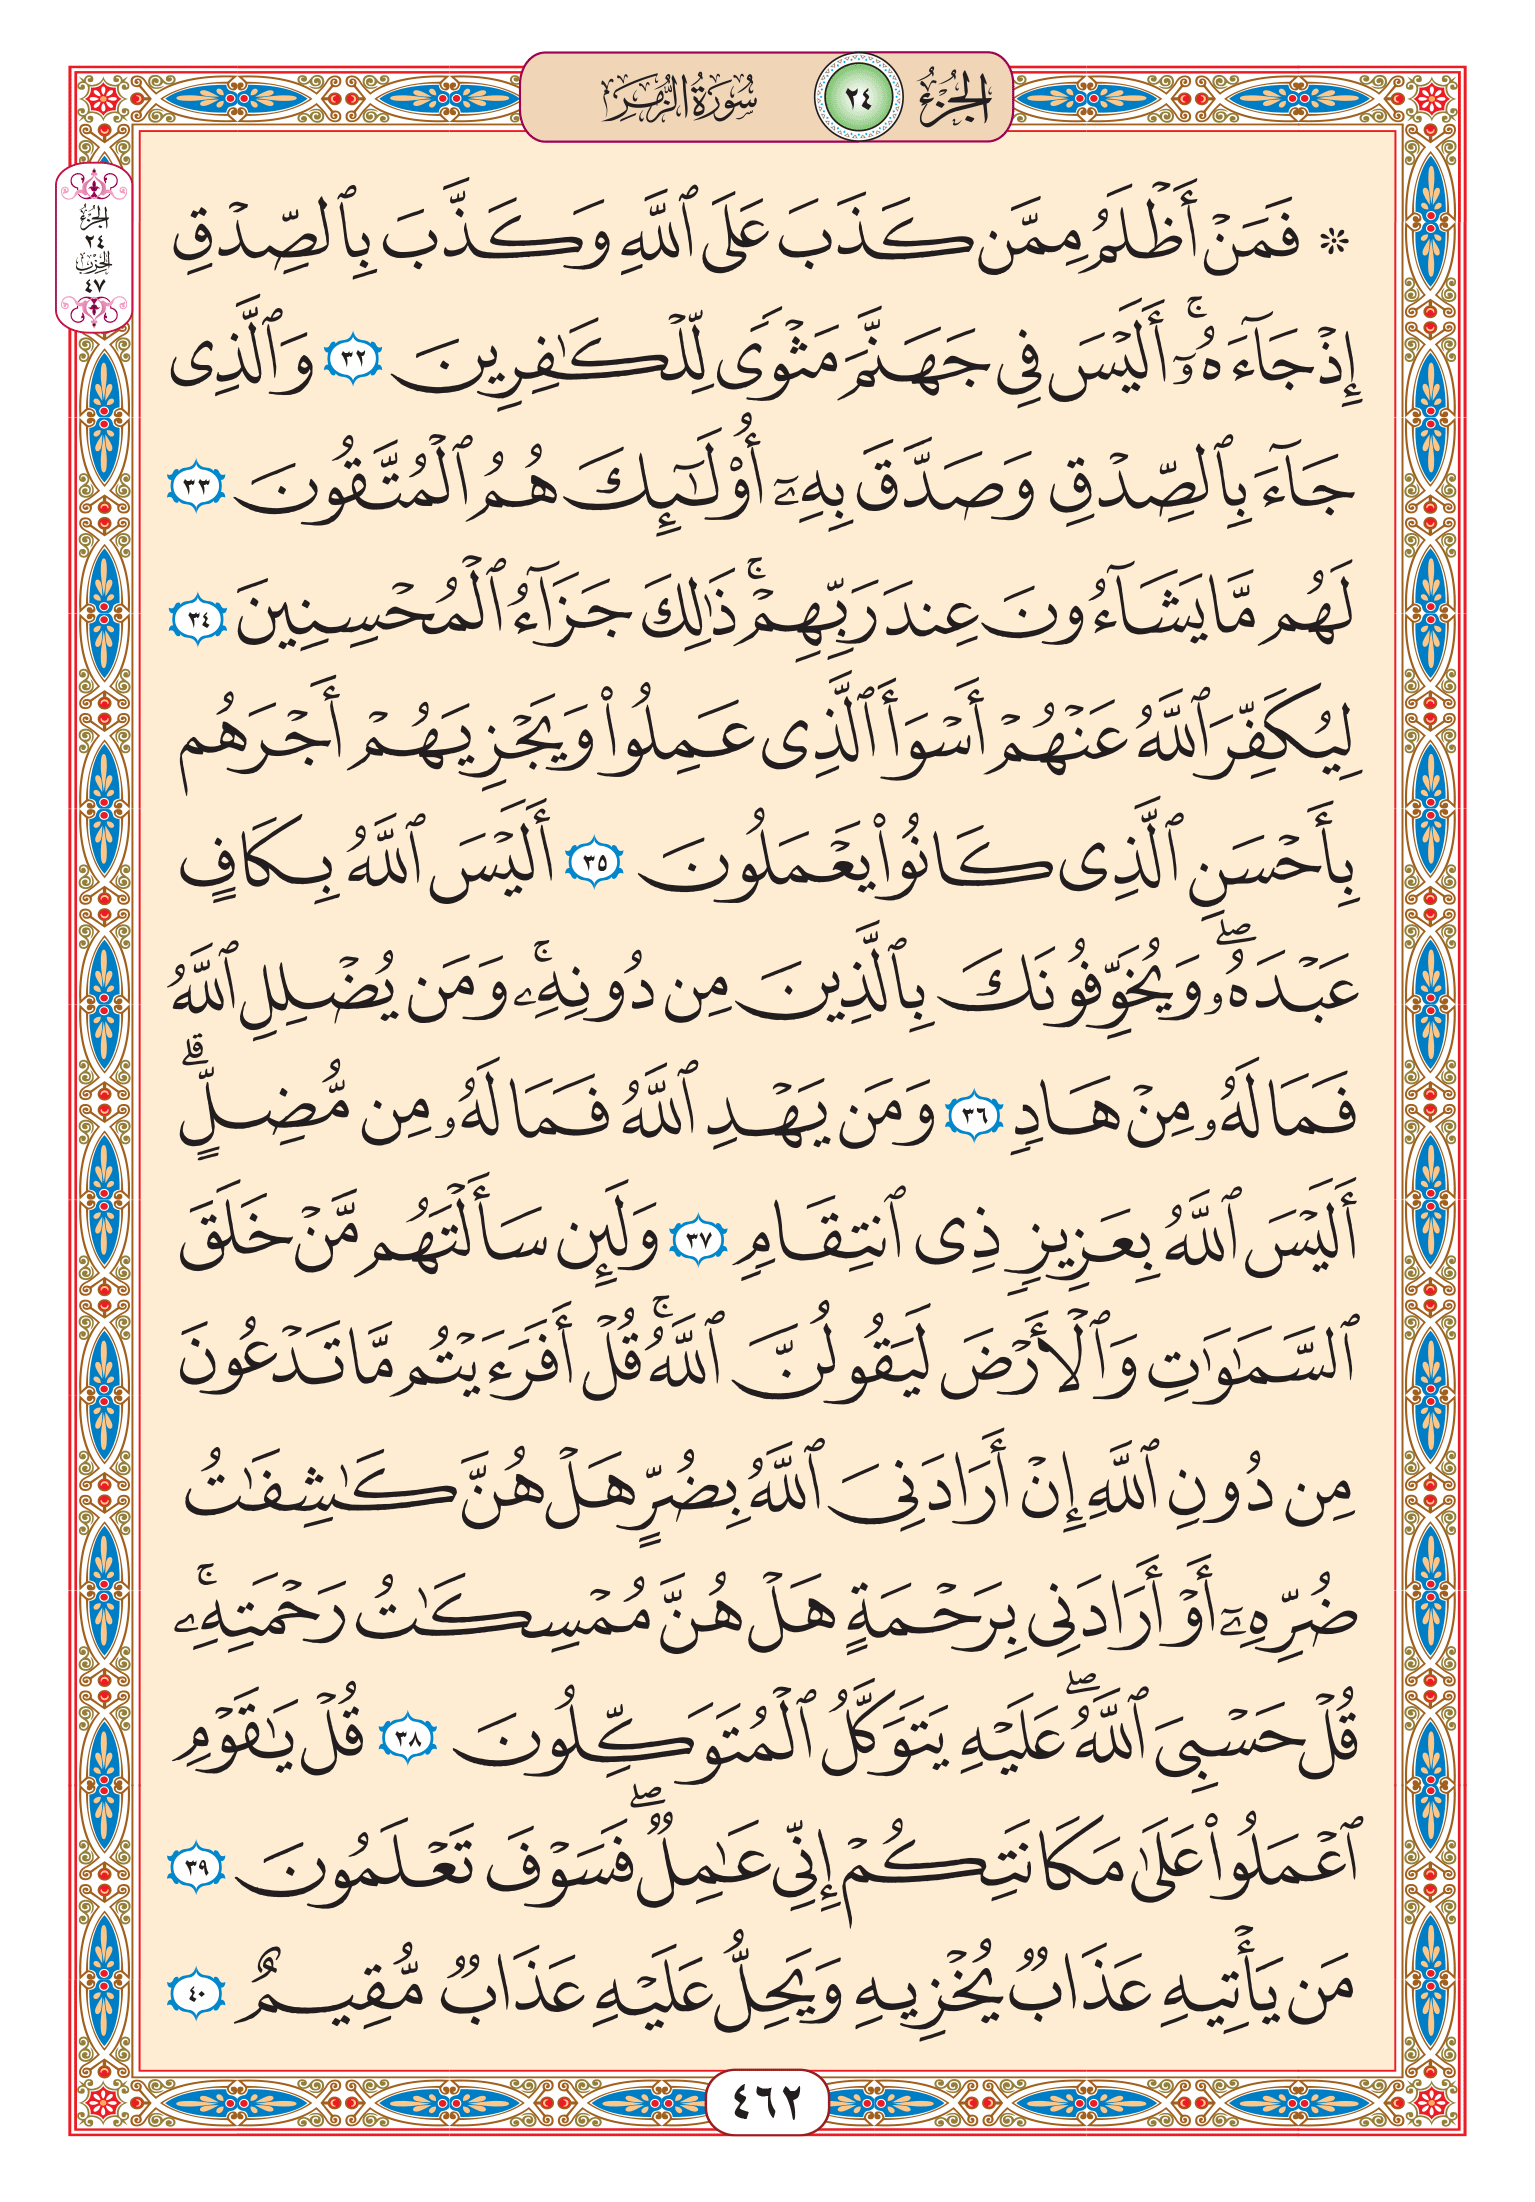 الجزء ٢٤ سورة الزمر
الجزء
٢٤
الحزب
٤٧
۞ فَمَنۡ أَظۡلَمُ مِمَّن كَذَبَ عَلَى ٱللَّهِ وَكَذَّبَ بِٱلصِّدۡقِ
إِذۡ جَآءَهُۥٓۚ أَلَيۡسَ فِي جَهَنَّمَ مَثۡوٗى لِّلۡكَٰفِرِينَ ٣٢ وَٱلَّذِي
جَآءَ بِٱلصِّدۡقِ وَصَدَّقَ بِهِۦٓ أُوْلَٰٓئِكَ هُمُ ٱلۡمُتَّقُونَ ٣٣
لَهُم مَّا يَشَآءُونَ عِندَ رَبِّهِمۡۚ ذَٰلِكَ جَزَآءُ ٱلۡمُحۡسِنِينَ ٣٤
لِيُكَفِّرَ ٱللَّهُ عَنۡهُمۡ أَسۡوَأَ ٱلَّذِي عَمِلُواْ وَيَجۡزِيَهُمۡ أَجۡرَهُم
بِأَحۡسَنِ ٱلَّذِي كَانُواْ يَعۡمَلُونَ ٣٥ أَلَيۡسَ ٱللَّهُ بِكَافٍ
عَبۡدَهُۥۖ وَيُخَوِّفُونَكَ بِٱلَّذِينَ مِن دُونِهِۦۚ وَمَن يُضۡلِلِ ٱللَّهُ
فَمَا لَهُۥ مِنۡ هَادٖ ٣٦ وَمَن يَهۡدِ ٱللَّهُ فَمَا لَهُۥ مِن مُّضِلٍّۗ
أَلَيۡسَ ٱللَّهُ بِعَزِيزٖ ذِي ٱنتِقَامٖ ٣٧ وَلَئِن سَأَلۡتَهُم مَّنۡ خَلَقَ
ٱلسَّمَٰوَٰتِ وَٱلۡأَرۡضَ لَيَقُولُنَّ ٱللَّهُۚ قُلۡ أَفَرَءَيۡتُم مَّا تَدۡعُونَ
مِن دُونِ ٱللَّهِ إِنۡ أَرَادَنِيَ ٱللَّهُ بِضُرٍّ هَلۡ هُنَّ كَٰشِفَٰتُ
ضُرِّهِۦٓ أَوۡ أَرَادَنِي بِرَحۡمَةٍ هَلۡ هُنَّ مُمۡسِكَٰتُ رَحۡمَتِهِۦۚ
قُلۡ حَسۡبِيَ ٱللَّهُۖ عَلَيۡهِ يَتَوَكَّلُ ٱلۡمُتَوَكِّلُونَ ٣٨ قُلۡ يَٰقَوۡمِ
ٱعۡمَلُواْ عَلَىٰ مَكَانَتِكُمۡ إِنِّي عَٰمِلٞۖ فَسَوۡفَ تَعۡلَمُونَ ٣٩
مَن يَأۡتِيهِ عَذَابٞ يُخۡزِيهِ وَيَحِلُّ عَلَيۡهِ عَذَابٞ مُّقِيمٌ ٤٠
٤٦٢